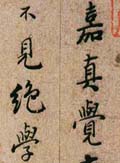 嘉真覺
不見絕學